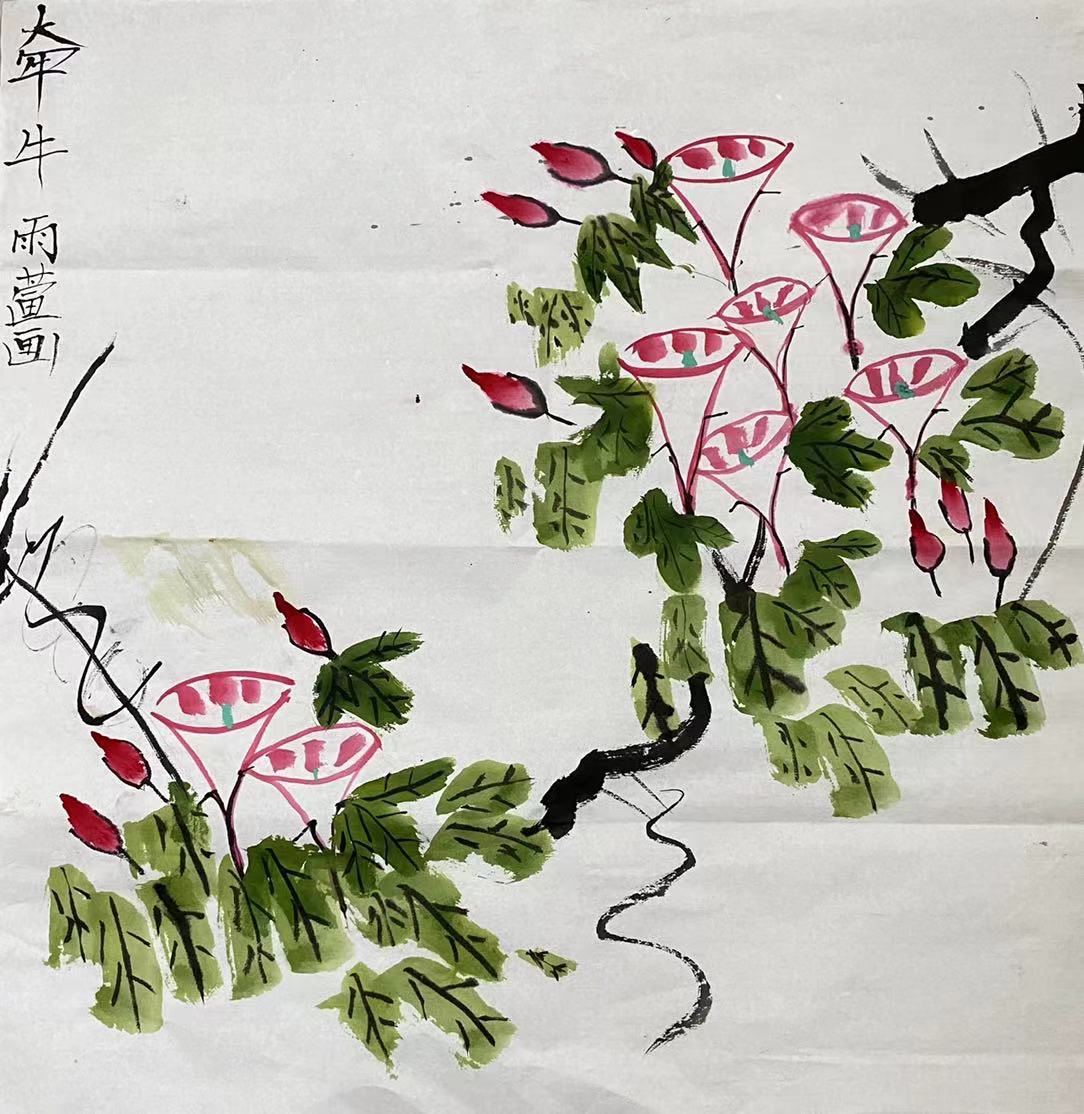 牵牛 雨萱画